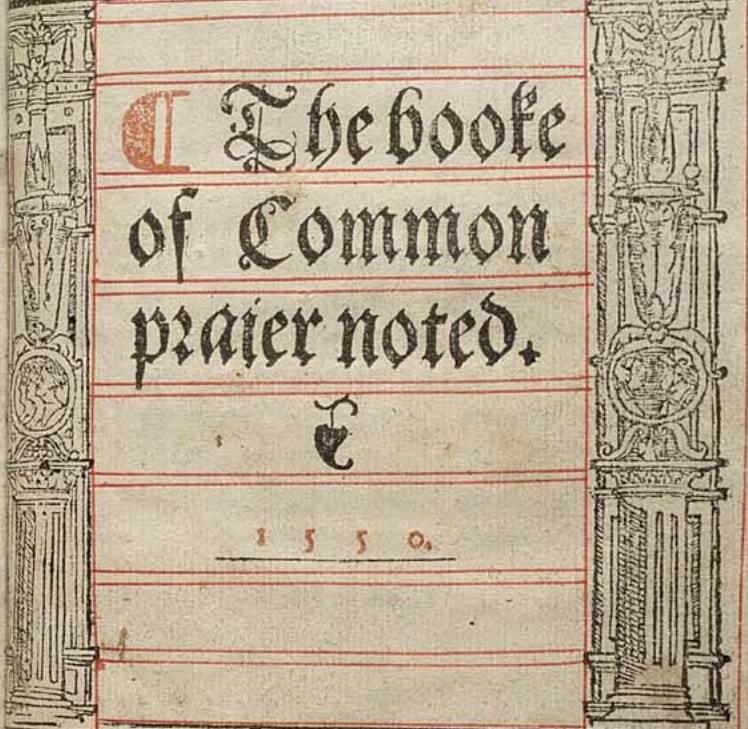 ¶ The booke
of Common
praier noted.
❦
1550.